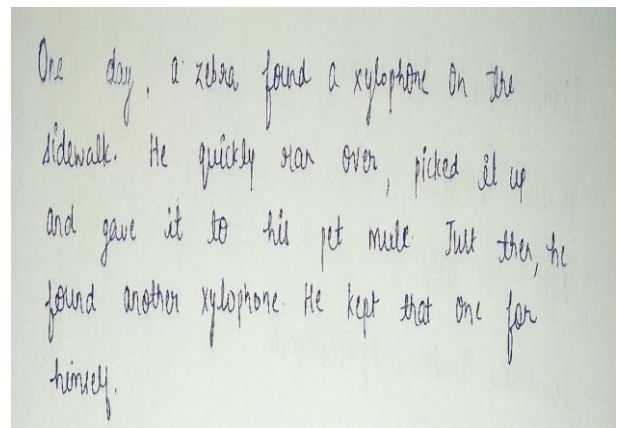 One day, a zebra found a xylophone on the
sidewalk. He quickly ran over, picked it up
and gave it to his pet mule. Just then, he
found another xylophone. He kept that one for
himself.